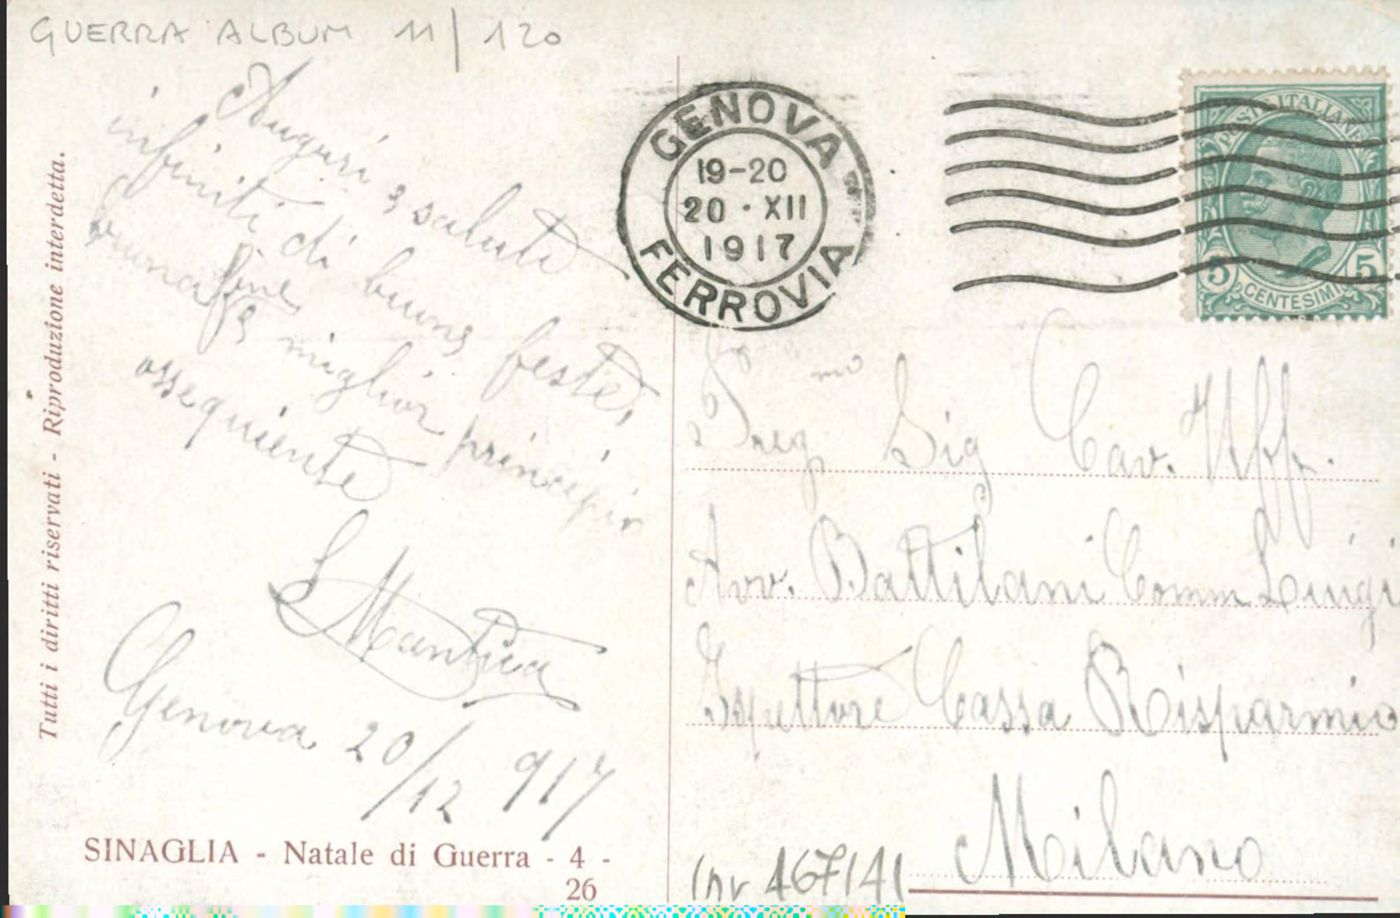 GUERRA ALBUM 11/120
Auguri e saluti
infiniti di buone feste,
buona fine e miglior principio
ossequiente
L Mantica
Genova 20/12 917
SINAGLIA - Natale di Guerra - 4 -
26
Tutti i diritti riservati - Riproduzione interdetta.
GENOVA
19-20
20 · XII
1917
FERROVIA
POSTE ITALIANE
5 CENTESIMI 5
Preg mo Sig Cav. Uff.
Avv. Battilani Comm Luigi
Ispettore Cassa Risparmio
Milano
inv 467141